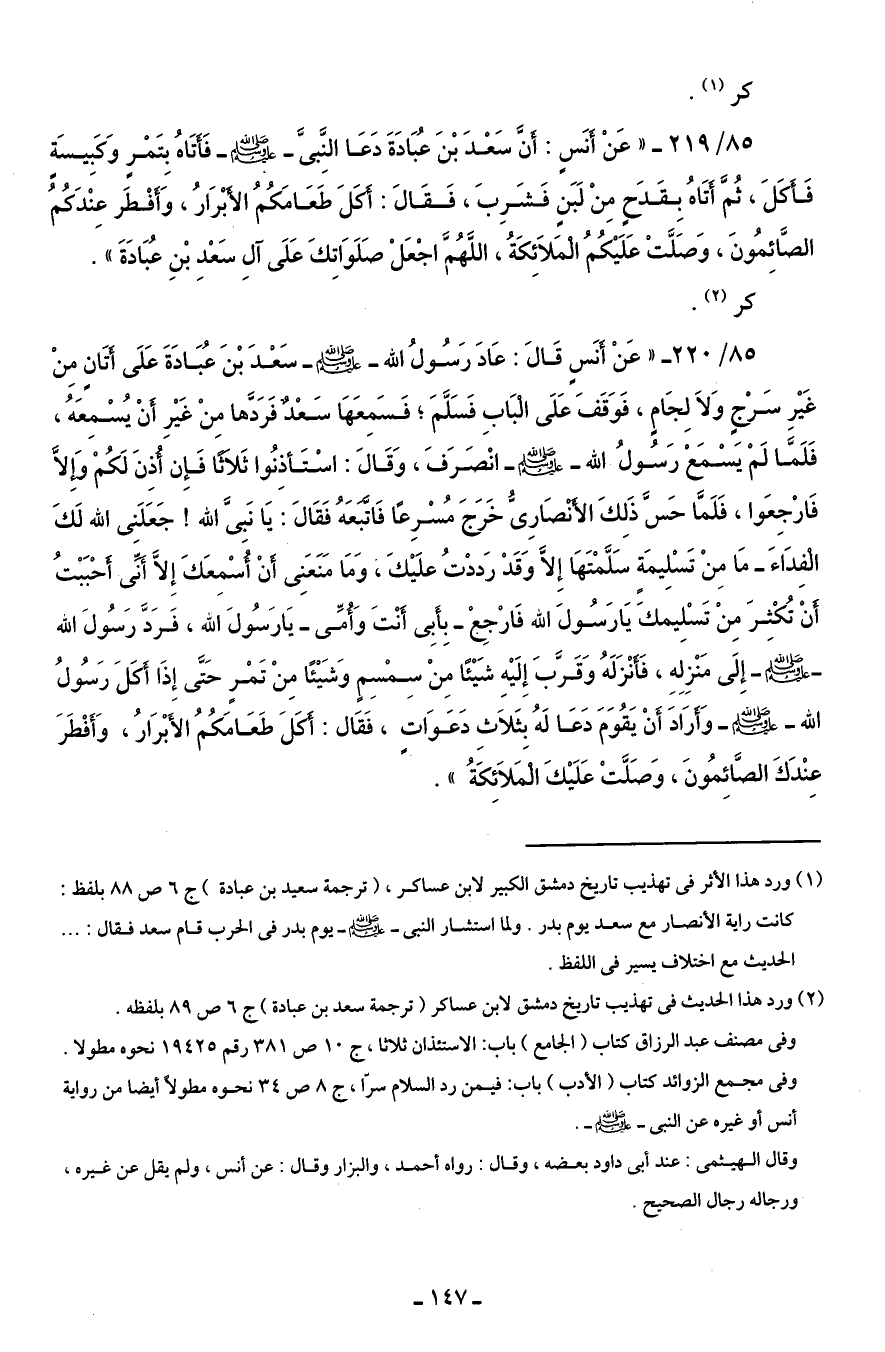 كر (١) .
٢١٩/٨٥ ـ « عَنْ أَنَسٍ : أَنَّ سَعْدَ بْنَ عُبَادَةَ دَعَا النَّبِىَّ ـ ﷺ ـ فَأَتَاهُ بِتَمْرٍ وَكَبِيسَةٍ
فَأَكَلَ ، ثُمَّ أَتَاهُ بِقَدَحٍ مِنْ لَبَنٍ فَشَرِبَ ، فَقَالَ : أَكَلَ طَعَامَكُمُ الأَبْرَارُ ، وَأَفْطَرَ عِنْدَكُمُ
الصَّائِمُونَ ، وَصَلَّتْ عَلَيْكُمُ الْمَلاَئِكَةُ ، اللَّهُمَّ اجْعَلْ صَلَوَاتِكَ عَلَى آلِ سَعْدِ بْنِ عُبَادَةَ » .
كر (٢) .
٢٢٠/٨٥ ـ « عَنْ أَنَسٍ قَالَ : عَادَ رَسُولُ الله ـ ﷺ ـ سَعْدَ بْنَ عُبَادَةَ عَلَى أَتَانٍ مِنْ
غَيْرِ سَرْجٍ وَلاَ لِجَامٍ ، فَوَقَفَ عَلَى الْبَابِ فَسَلَّمَ ؛ فَسَمِعَهَا سَعْدٌ فَرَدَّها مِنْ غَيْرِ أَنْ يُسْمِعَهُ ،
فَلَمَّا لَمْ يَسْمَعْ رَسُولُ الله ـ ﷺ ـ انْصَرَفَ ، وَقَالَ : اسْتَأذِنُوا ثَلاَثًا فَإِن أُذِنَ لَكُمْ وَإِلاَّ
فَارْجِعُوا ، فَلَمَّا حَسَّ ذَلِكَ الأَنْصَارِىُّ خَرَجَ مُسْرِعًا فَاتَّبَعَهُ فَقَالَ : يَا نَبِىَّ الله ! جَعَلَنِى الله لَكَ
الْفِدَاءَ ـ مَا مِنْ تَسْلِيمَةٍ سَلَّمْتَهَا إِلاَّ وَقَدْ رَدَدْتُ عَلَيْكَ ، وَمَا مَنَعَنِى أَنْ أُسْمِعَكَ إِلاَّ أَنِّى أَحْبَبْتُ
أَنْ تُكْثِرَ مِنْ تَسْلِيمِكَ يَارَسُولَ الله فَارْجِعْ ـ بِأَبِى أَنْتَ وَأُمِّى ـ يَارَسُولَ الله ، فَرَدَّ رَسُولَ الله
ـ ﷺ ـ إِلَى مَنْزِلِهِ ، فَأَنْزَلَهُ وَقَرَّبَ إِلَيْهِ شَيْئًا مِنْ سِمْسِمٍ وَشَيْئًا مِنْ تَمْرٍ حَتَّى إِذَا أَكَلَ رَسُولُ
الله ـ ﷺ ـ وَأَرَادَ أَنْ يَقُومَ دَعَا لَهُ بِثَلاَثِ دَعَوَاتٍ ، فَقَالَ : أَكَلَ طَعَامَكُمُ الأَبْرَارُ ، وَأَفْطَرَ
عِنْدَكَ الصَّائِمُونَ ، وَصَلَّتْ عَلَيْكَ الْمَلاَئِكَةُ » .
(١) ورد هذا الأثر فى تهذيب تاريخ دمشق الكبير لابن عساكر ، ( ترجمة سعيد بن عبادة ) ج ٦ ص ٨٨ بلفظ :
كانت راية الأنصار مع سعد يوم بدر . ولما استشار النبى ـ ﷺ ـ يوم بدر فى الحرب قام سعد فقال : ...
الحديث مع اختلاف يسير فى اللفظ .
(٢) ورد هذا الحديث فى تهذيب تاريخ دمشق لابن عساكر ( ترجمة سعد بن عبادة ) ج ٦ ص ٨٩ بلفظه .
وفى مصنف عبد الرزاق كتاب ( الجامع ) باب: الاستئذان ثلاثا ، ج ١٠ ص ٣٨١ رقم ١٩٤٢٥ نحوه مطولا .
وفى مجمع الزوائد كتاب ( الأدب ) باب: فيمن رد السلام سرّا ، ج ٨ ص ٣٤ نحوه مطولاً أيضا من رواية
أنس أو غيره عن النبى ـ ﷺ ـ .
وقال الهيثمى : عند أبى داود بعضه ، وقال : رواه أحمد ، والبزار وقال : عن أنس ، ولم يقل عن غيره ،
ورجاله رجال الصحيح .
ـ ١٤٧ ـ